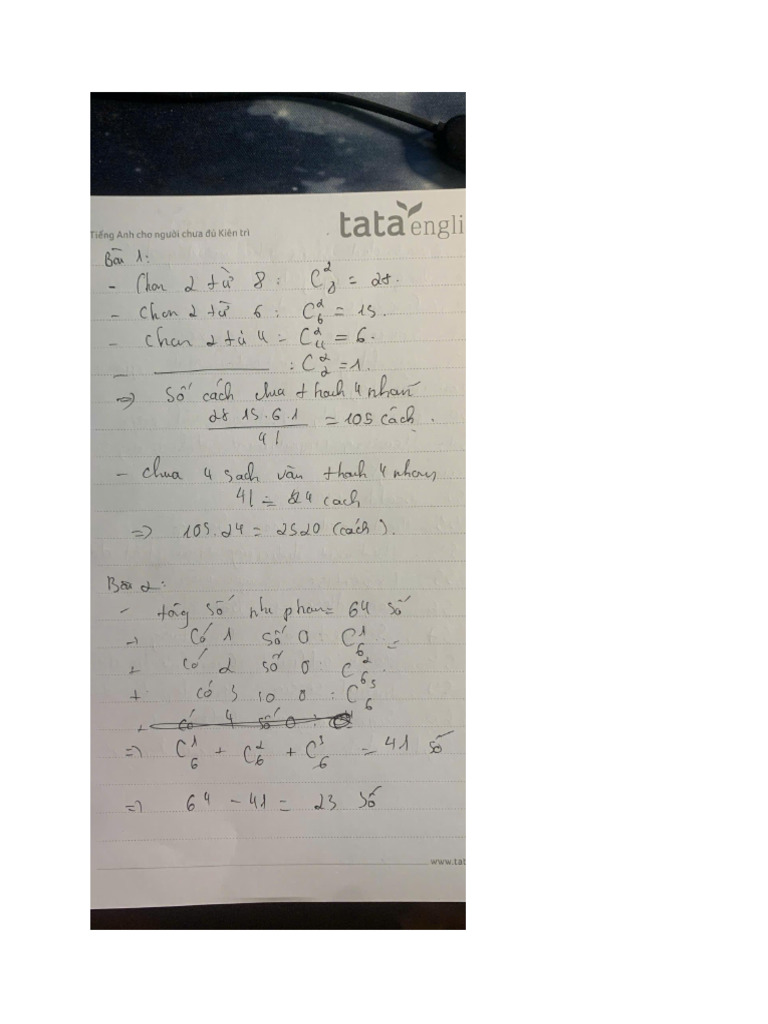 Tiếng Anh cho người chưa đủ Kiên trì
tata engli
Bài 1:
- Chọn 2 từ 8 : C²₈ = 28.
- Chọn 2 từ 6 : C²₆ = 15.
- Chọn 2 từ 4 = C²₄ = 6.
- : C²₂ = 1.
=> Số cách chia thành 4 nhóm
28 15.6.1 / 4! = 105 cách.
- Chia 4 sách văn thành 4 nhóm
4! = 24 cách
=> 105.24 = 2520 (cách).
Bài 2:
- tổng số nhị phân = 64 số
+ Có 1 số 0 C¹₆ =
+ có 2 số 0 : C²₆.
+ có 3 số 0 : C³₆
+ có 4 số 0 :
=> C¹₆ + C²₆ + C³₆ = 41 số
=> 64 - 41 = 23 số
www.tat